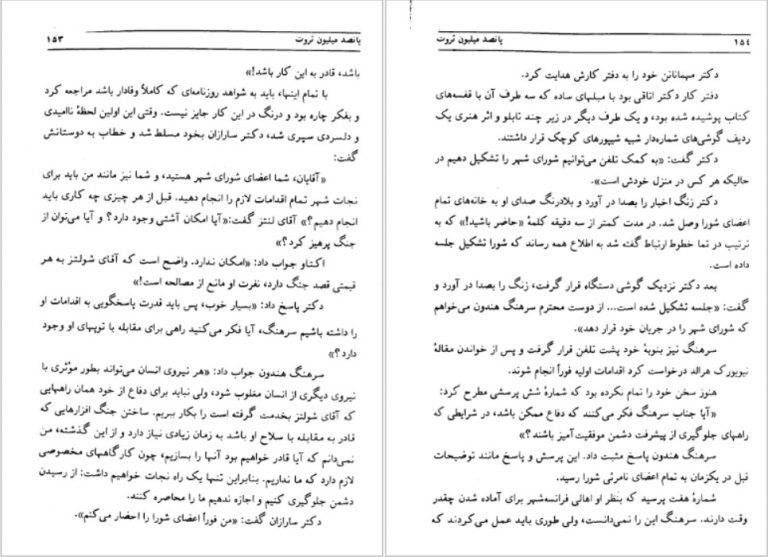 پانصد میلیون ثروت ۱۵۳
باشد، قادر به این کار باشد!»
با تمام اینها، باید به شواهد روزنامه‌ای که کاملاً وفادار باشد مراجعه کرد
و بفکر چاره بود و درنگ در این کار جایز نیست. وقتی این اولین لحظهٔ ناامیدی
و دلسردی سپری شد، دکتر سارازان بخود مسلط شد و خطاب به دوستانش
گفت:
«آقایان، شما اعضای شورای شهر هستید، و شما نیز مانند من باید برای
نجات شهر تمام اقدامات لازم را انجام دهید. قبل از هر چیزی چه کاری باید
انجام دهیم؟» آقای لنتز گفت:«آیا امکان آشتی وجود دارد؟ و آیا می‌توان از
جنگ پرهیز کرد؟»
اکتاو جواب داد: «امکان ندارد. واضح است که آقای شولتز به هر
قیمتی قصد جنگ دارد، نفرت او مانع از مصالحه است!»
دکتر پاسخ داد: «بسیار خوب، پس باید قدرت پاسخگویی به اقدامات او
را داشته باشیم سرهنگ، آیا فکر می‌کنید راهی برای مقابله با توپهای او وجود
دارد؟»
سرهنگ هندون جواب داد: «هر نیروی انسان می‌تواند بطور مؤثری با
نیروی دیگری از انسان مغلوب شود، ولی نباید برای دفاع از خود همان راههایی
که آقای شولتز بخدمت گرفته است را بکار ببریم. ساختن جنگ افزارهایی که
قادر به مقابله با سلاح او باشد به زمان زیادی نیاز دارد و از این گذشته، من
نمی‌دانم که آیا قادر خواهیم بود آنها را بسازیم، چون کارگاههای مخصوصی
لازم دارد که ما نداریم. بنابراین تنها یک راه نجات خواهیم داشت: از رسیدن
دشمن جلوگیری کنیم و اجازه ندهیم ما را محاصره کنند.
دکتر سارازان گفت: «من فوراً اعضای شورا را احضار می‌کنم».
۱۵٤ پانصد میلیون ثروت
دکتر مهمانانش خود را به دفتر کارش هدایت کرد.
دفتر کار دکتر اتاقی بود با مبلهای ساده که سه طرف آن با قفسه‌های
کتاب پوشیده شده بود، و یک طرف دیگر در زیر چند تابلو و اثر هنری یک
ردیف گوشی‌های شماره‌دار شبیه شیپورهای کوچک قرار داشتند.
دکتر گفت: «به کمک تلفن می‌توانیم شورای شهر را تشکیل دهیم در
حالیکه هر کس در منزل خودش است».
دکتر زنگ اخبار را بصدا در آورد و بلادرنگ صدای او به خانه‌های تمام
اعضای شورا وصل شد. در مدت کمتر از سه دقیقه کلمهٔ «حاضر باشید!» که به
ترتیب در تما خطوط ارتباط گفته شد به اطلاع همه رساند که شورا تشکیل جلسه
داده است.
بعد دکتر نزدیک گوشی دستگاه قرار گرفت، زنگ را بصدا در آورد و
گفت: «جلسه تشکیل شده است... از دوست محترم سرهنگ هندون می‌خواهم
که شورای شهر را در جریان خود قرار دهد».
سرهنگ نیز بنوبهٔ خود پشت تلفن قرار گرفت و پس از خواندن مقالهٔ
نیویورک هرالد درخواست کرد اقدامات اولیه فوراً انجام شوند.
هنوز سخن خود را تمام نکرده بود که شمارهٔ شش پرسشی مطرح کرد:
«آیا جناب سرهنگ فکر می‌کنند که دفاع ممکن باشد، در شرایطی که
راههای جلوگیری از پیشرفت دشمن موفقیت‌آمیز باشند؟»
سرهنگ هندون پاسخ مثبت داد. این پرسش و پاسخ مانند توضیحات
قبل در یکزمان به تمام اعضای نامرئی شورا رسید.
شمارهٔ هفت پرسید که بنظر او اهالی فرانسه‌شهر برای آماده شدن چقدر
وقت دارند. سرهنگ این را نمی‌دانست، ولی طوری باید عمل می‌کردند که